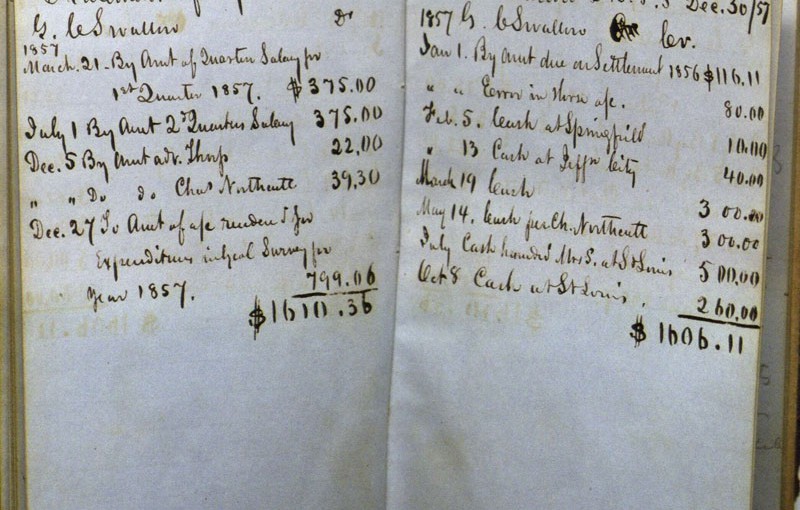 G. C Swallow Dr
1857
March. 21 - By Amt of Quarter Salary for
1st Quarter 1857. $ 375.00
July 1 By Amt 2d Quarters Salary 375.00
Dec. 5 By Amt adv. Thorp 22,00
" " Do do Chas Northcutt 39,30
Dec. 27 To Amt of a/c rendered for
Expenditures in Geol Survey for
Year 1857. 799.06
$1610.36
Dec. 30/57
1857 G. C Swallow Cr.
Jan 1. By Amt due on Settlement 1856 $116.11
" " Error in Horse a/c. 80.00
Feb. 5. Cash at Springfield 10.00
" 13 Cash at Jeffn City 40.00
March 19 Cash 300.00
May 14. Cash per Ch. Northcutt 300.00
July Cash handed Mrs S. at St Louis 500,00
Oct 8 Cash at St Louis. 260,00
$ 1606.11